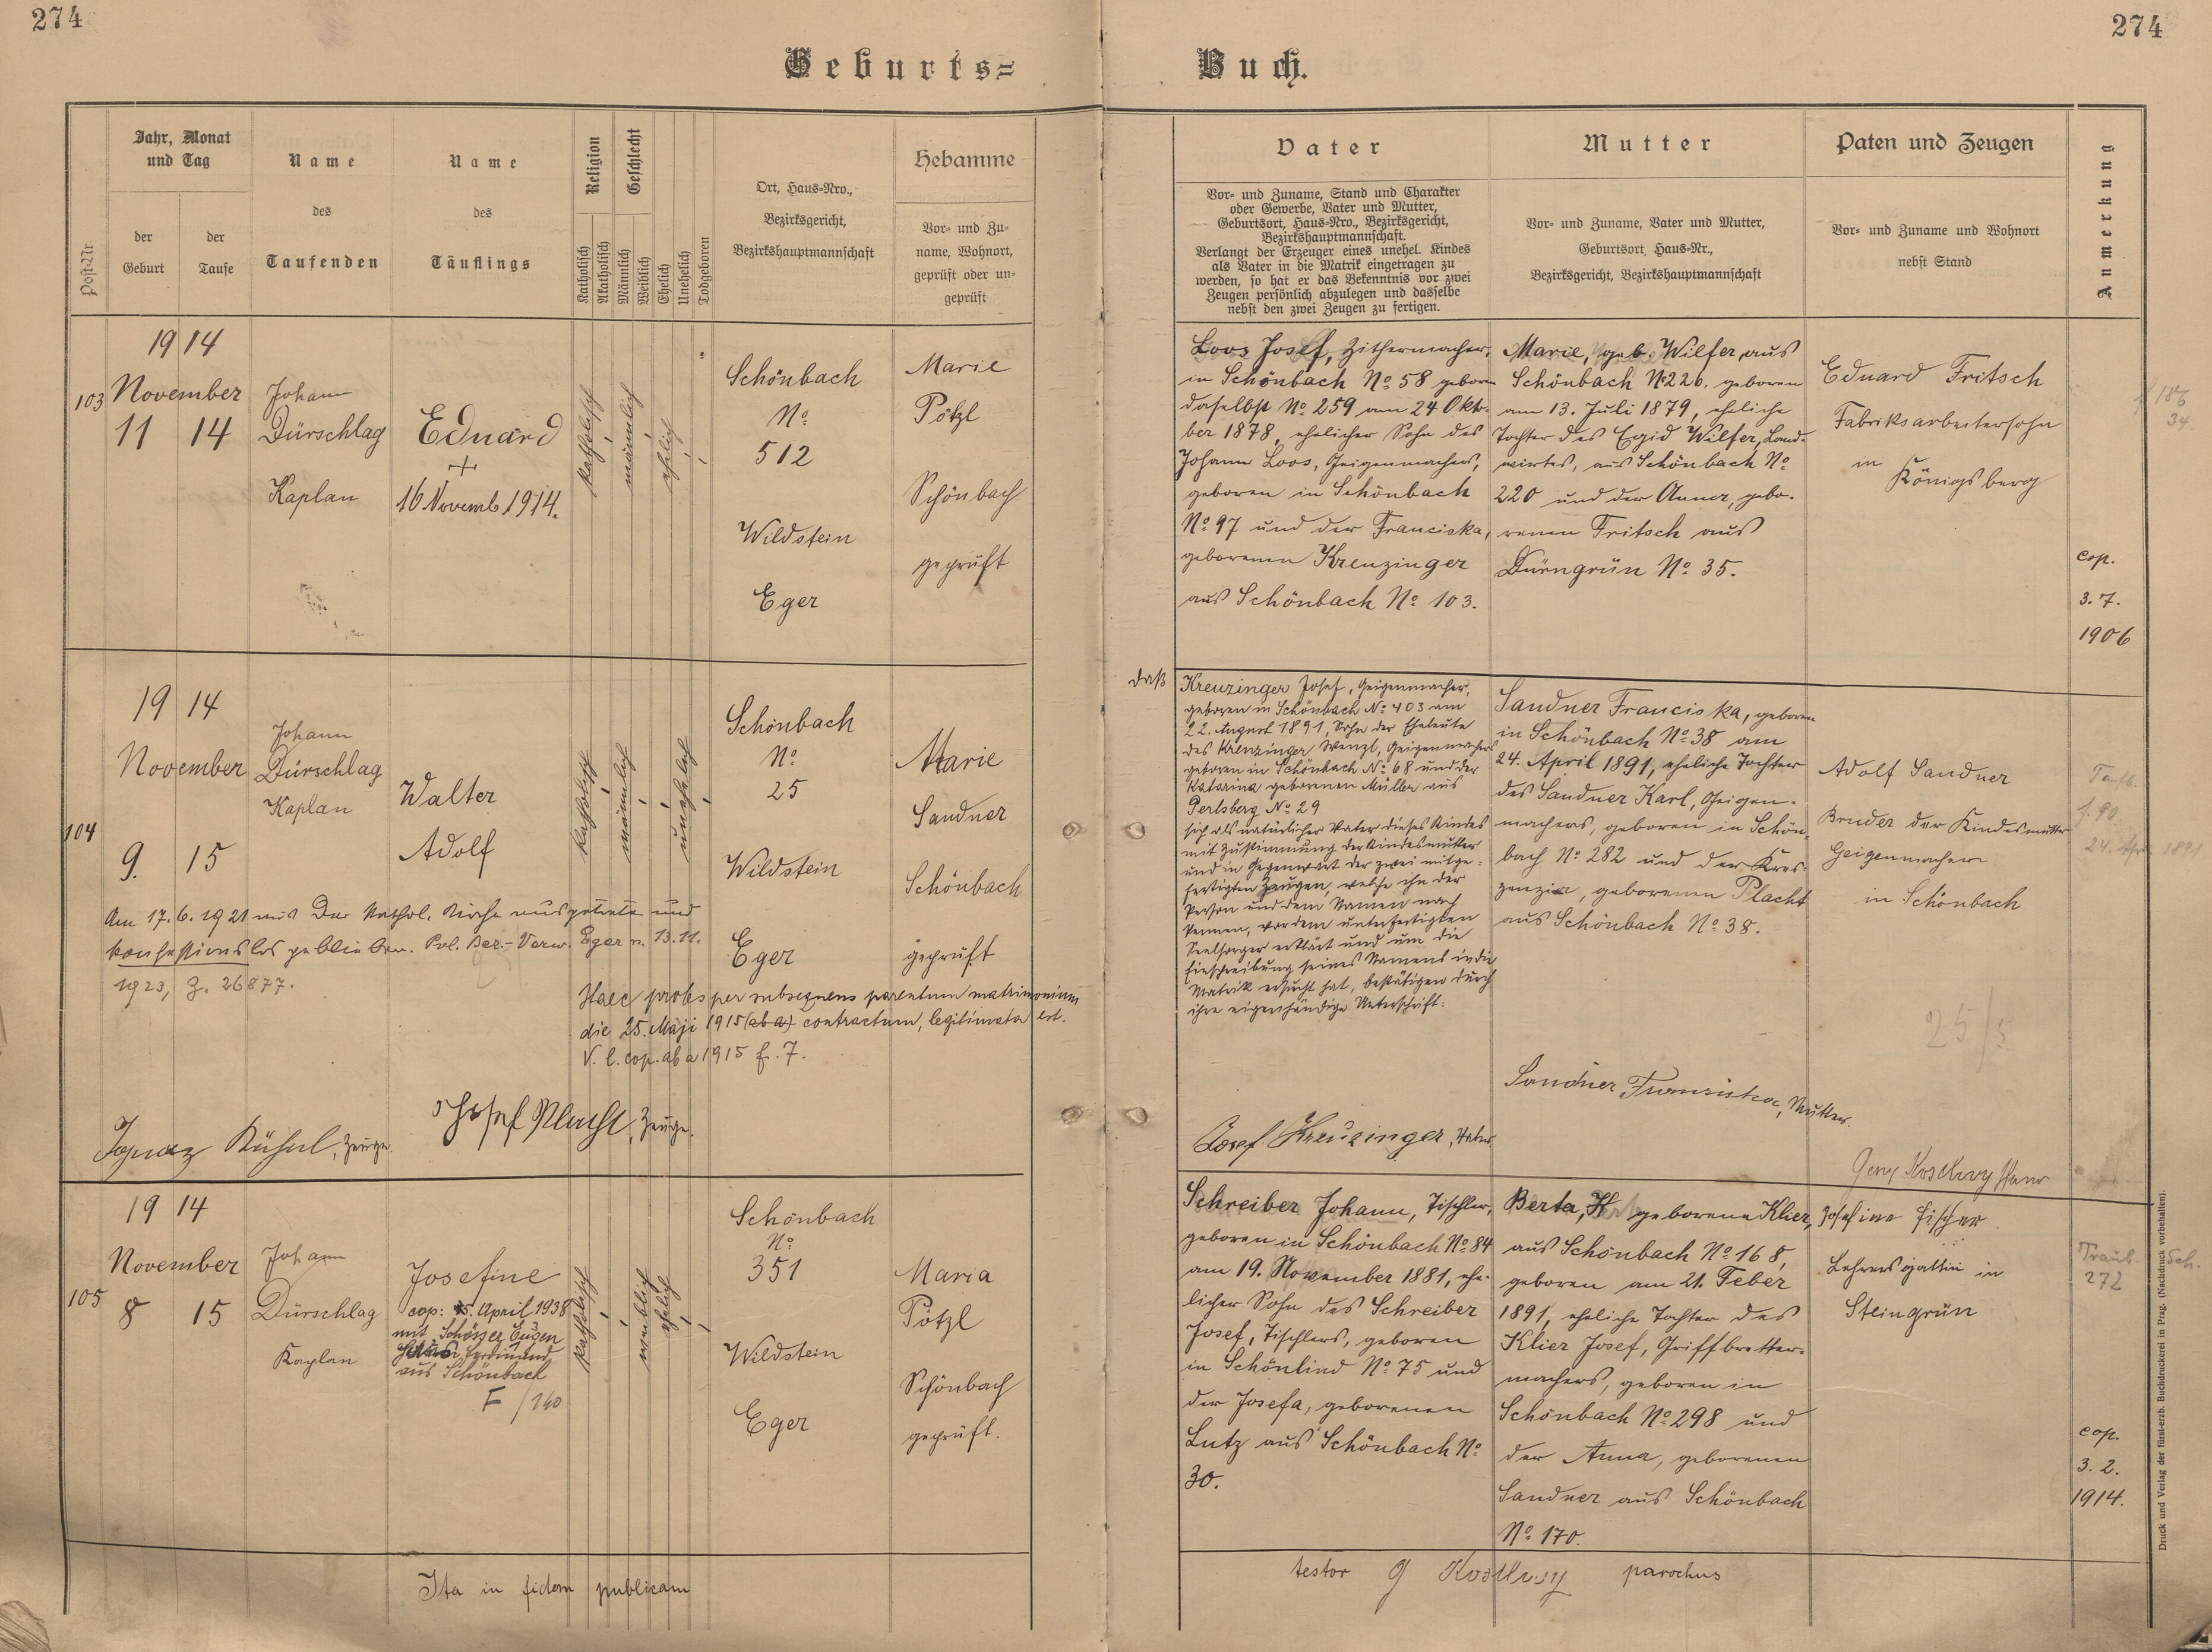 274
274
Geburts=
Buch.
Post-Nr.
Jahr, Monat
und Tag
der
Geburt
der
Taufe
Name
des
Taufenden
Name
des
Täuflings
Religion
Katholisch
Akatholisch
Geschlecht
Männlich
Weiblich
Ehelich
Unehelich
Todgeboren
Ort, Haus=Nro.,
Bezirksgericht,
Bezirkshauptmannschaft
Hebamme
Vor= und Zu=
name, Wohnort,
geprüft oder un=
geprüft
Vater
Vor= und Zuname, Stand und Charakter
oder Gewerbe, Vater und Mutter,
Geburtsort, Haus=Nro., Bezirksgericht,
Bezirkshauptmannschaft.
Verlangt der Erzeuger eines unehel. Kindes
als Vater in die Matrik eingetragen zu
werden, so hat er das Bekenntnis vor zwei
Zeugen persönlich abzulegen und dasselbe
nebst den zwei Zeugen zu fertigen.
Mutter
Vor= und Zuname, Vater und Mutter,
Geburtsort, Haus=Nr.,
Bezirksgericht, Bezirkshauptmannschaft
Paten und Zeugen
Vor= und Zuname und Wohnort
nebst Stand
Anmerkung
103
19 14
November
11 14
Johann
Dürschlag
Kaplan
Eduard
+
16 Novemb. 1914.
katholisch
männlich
ehelich
Schönbach
No
512
Wildstein
Eger
Marie
Pötzl
Schönbach
geprüft
Loos Josef, Zithermacher,
in Schönbach No 58 geboren
daselbst No 259 am 24 Okto-
ber 1878, ehelicher Sohn des
Johann Loos, Geigenmachers,
geboren in Schönbach
No 97 und der Franciska,
geborenen Kreuzinger
aus Schönbach No 103.
Marie, geb. Wilfer, aus
Schönbach No 226. geboren
am 13. Juli 1879, eheliche
Tochter des Egid Wilfer, Land-
wirtes, aus Schönbach No
220 und der Anna, gebo-
renen Fritsch aus
Dürngrün No 35.
Eduard Fritsch
Fabriksarbeitersohn
in
Königsberg
186
34
cop.
3. 7.
1906
104
19 14
November
9. 15
Johann
Dürschlag
Kaplan
Walter
Adolf
katholisch
männlich
unehelich
Schönbach
No
25
Wildstein
Eger
Marie
Sandner
Schönbach
geprüft
Am 17. 6. 1921 aus der kathol. Kirche ausgetreten und
konfessionslos geblieben. Pol. Bez.-Verw. Eger v. 13. 11.
1923, Z. 26877.
Haec proles per subsequens parentum matrimonium
die 25. Maji 1915 (ab a) contractum, legitimata est.
V. l. cop. ab a 1915 f. 7.
Ignaz Kühnl, Zeuge.
Josef Placht, Zeuge.
daß
Kreuzinger Josef, Geigenmacher,
geboren in Schönbach No 403 am
22. August 1891, Sohn der Eheleute
des Kreuzinger Wenzl, Geigenmachers
geboren in Schönbach No 68 und der
Katarina geborenen Müller aus
Perlsberg No 29
sich als natürlicher Vater dieses Kindes
mit Zustimmung der Kindesmutter
und in Gegenwart der zwei mitge-
fertigten Zeugen, welche ihn der
Person und dem Namen nach
kennen, vor dem unterfertigten
Seelsorger erklärt und um die
Einschreibung seines Namens in die
Matrik ersucht hat, bestätigen durch
ihre eigenhändige Unterschrift:
Josef Kreuzinger, Vater.
Sandner Franciska, geboren
in Schönbach No 38 am
24. April 1891, eheliche Tochter
des Sandner Karl, Geigen-
machers, geboren in Schön-
bach No 282 und der Kres-
zenzia, geborenen Placht
aus Schönbach No 38.
Sandner Franziska, Mutter.
Adolf Sandner
Bruder der Kindesmutter
Geigenmacher
in Schönbach
25/5
f. 90
24. Apr. 1891
105
19 14
November
8 15
Johann
Dürschlag
Kaplan
Josefine
cop: 5. April 1938
mit Schösser Eugen
Ferdinand
aus Schönbach
F/140
katholisch
weiblich
ehelich
Schönbach
No
351
Wildstein
Eger
Maria
Pötzl
Schönbach
geprüft.
Schreiber Johann, Tischler,
geboren in Schönbach No 84
am 19. November 1881, ehe-
licher Sohn des Schreiber
Josef, Tischlers, geboren
in Schönlind No 75 und
der Josefa, geborenen
Lutz aus Schönbach No
30.
Berta, geborene Klier,
aus Schönbach No 168,
geboren am 21. Feber
1891, eheliche Tochter des
Klier Josef, Griffbretter-
machers, geboren in
Schönbach No 298 und
der Anna, geborenen
Sandner aus Schönbach
No 170.
Josefine Fischer
Lehrersgattin in
Steingrün
Traub. Sch.
272
cop.
3. 2.
1914.
Ita in fidem publicam
testor parochus
Druck und Verlag der fürst-erzb. Buchdruckerei in Prag. (Nachdruck vorbehalten).